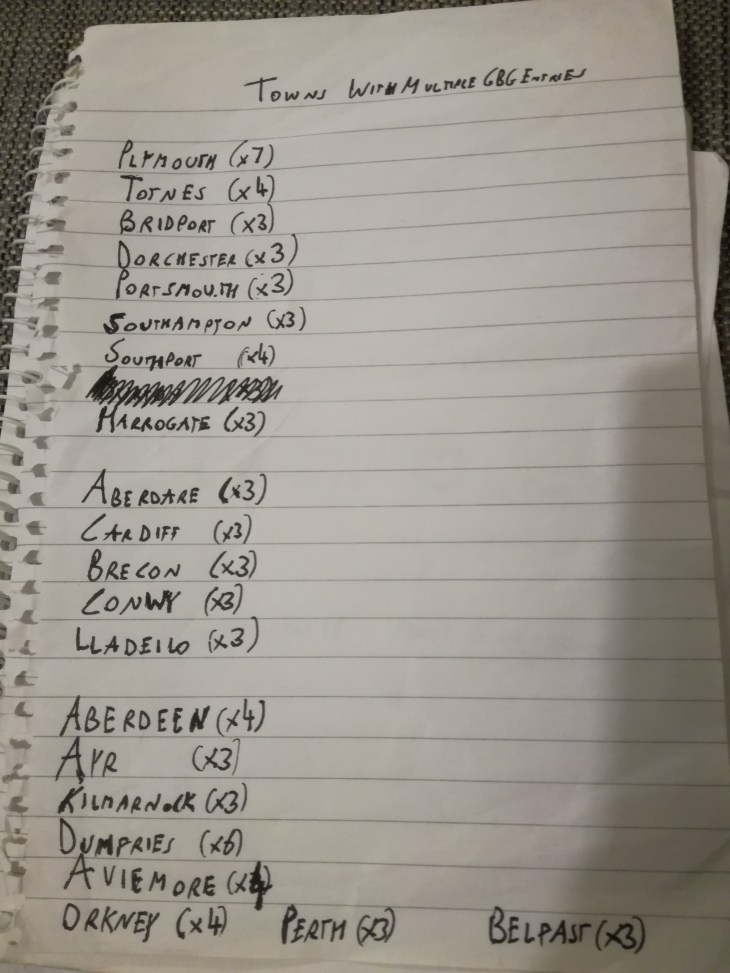 TOWNS WITH MULTIPLE GBG ENTRIES
PLYMOUTH (x7)
TOTNES (x4)
BRIDPORT (x3)
DORCHESTER (x3)
PORTSMOUTH (x3)
SOUTHAMPTON (x3)
SOUTHPORT (x4)
HARROGATE (x3)
ABERDARE (x3)
CARDIFF (x3)
BRECON (x3)
CONWY (x3)
LLADEILO (x3)
ABERDEEN (x4)
AYR (x3)
KILMARNOCK (x3)
DUMFRIES (x6)
AVIEMORE (x4)
ORKNEY (x4) PERTH (x3) BELFAST (x3)